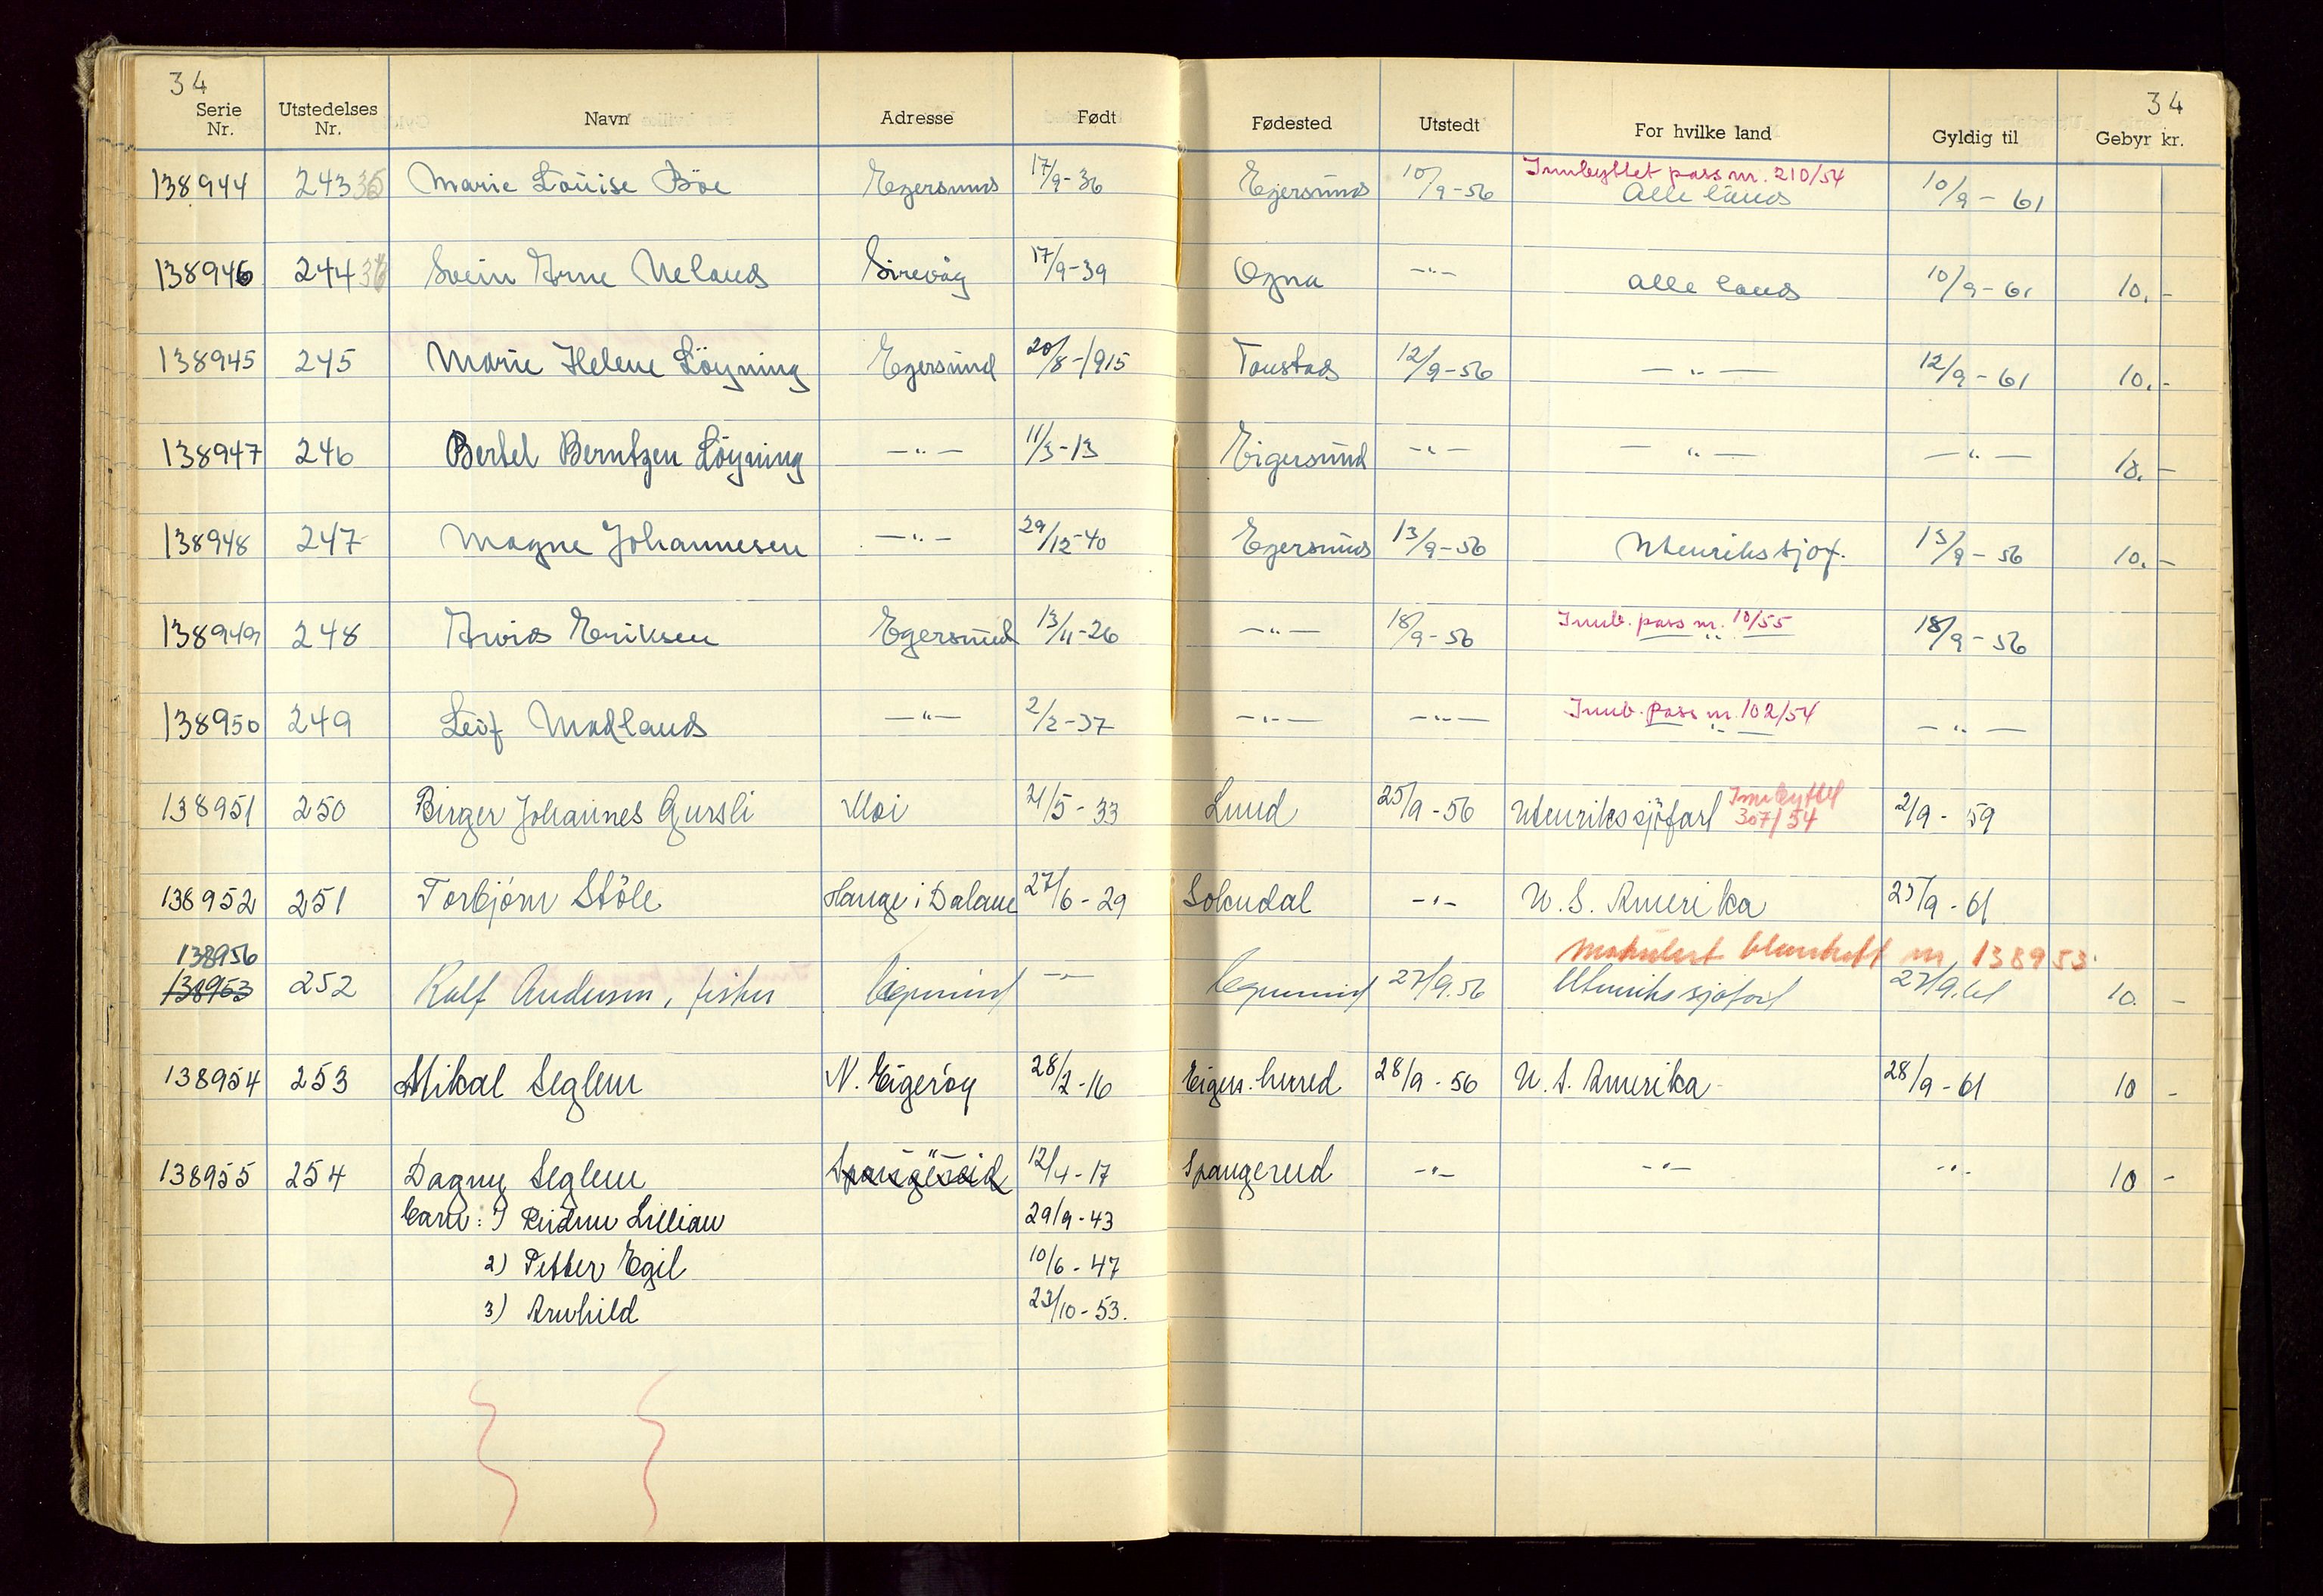 34 34
Serie Nr. Utstedelses Nr. Navn Adresse Født Fødested Utstedt For hvilke land Gyldig til Gebyr kr.
Innbyttet pass nr. 210/54
138944 243 Marie Louise Böe Egersund 17/9-36 Egersund 10/9-56 Alle land 10/9-61
138946 244 Svein Arne Ueland Sirevåg 17/9-39 Ogna -"- alle land 10/9-61 10.-
138945 245 Marie Helene Löyning Egersund 20/8-1915 Tonstad 12/9-56 -"- 12/9-61 10.-
138947 246 Bertel Berntzen Löyning -"- 11/3-13 Eigersund -"- -"- -"- 10.-
138948 247 Magne Johannesen -"- 29/12-40 Egersund 13/9-56 Utenrikssjøf. 13/9-56 10.-
Innb. pass nr. 10/55
138949 248 Arvid Eriksen Egersund 13/11-26 -"- 18/9-56 -"- 18/9-56
Innb. pass nr. 102/54
138950 249 Leif Madland -"- 2/2-37 -"- -"- -"- -"-
138951 250 Birger Johannes Gursli Moi 21/5-33 Lund 25/9-56 Utenrikssjöfart Innbyttet 307/54 2/9-59
138952 251 Torbjörn Stöle Hauge i Dalane 27/6-29 Sokndal -"- U. S. Amerika 25/9-61
138956 Makulert blankett nr 138953.
138953 252 Rolf Andersen, fisker Egersund -"- Egersund 27/9.56 Utenrikssjøfart 27/9.61 10.-
138954 253 Mikal Seglem N. Eigeröy 28/2-16 Eigers. herred 28/9-56 U. S. Amerika 28/9-61 10 -
138955 254 Dagny Seglem Spangereid -"- 12/4-17 Spangereid -"- -"- -"- 10 -
barn: 1 Reidun Lillian 29/9-43
2) Petter Egil 10/6-47
3) Arnhild 23/10-53.